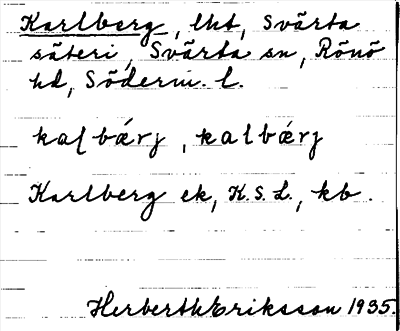 Karlberg, lht, Svärta
säteri, Svärta sn, Rönö
hd, Söderm. l.
kaɭbǽrj, kalbǽrj
Karlberg ek, K.S.L., kb.
Herbert Eriksson 1935.